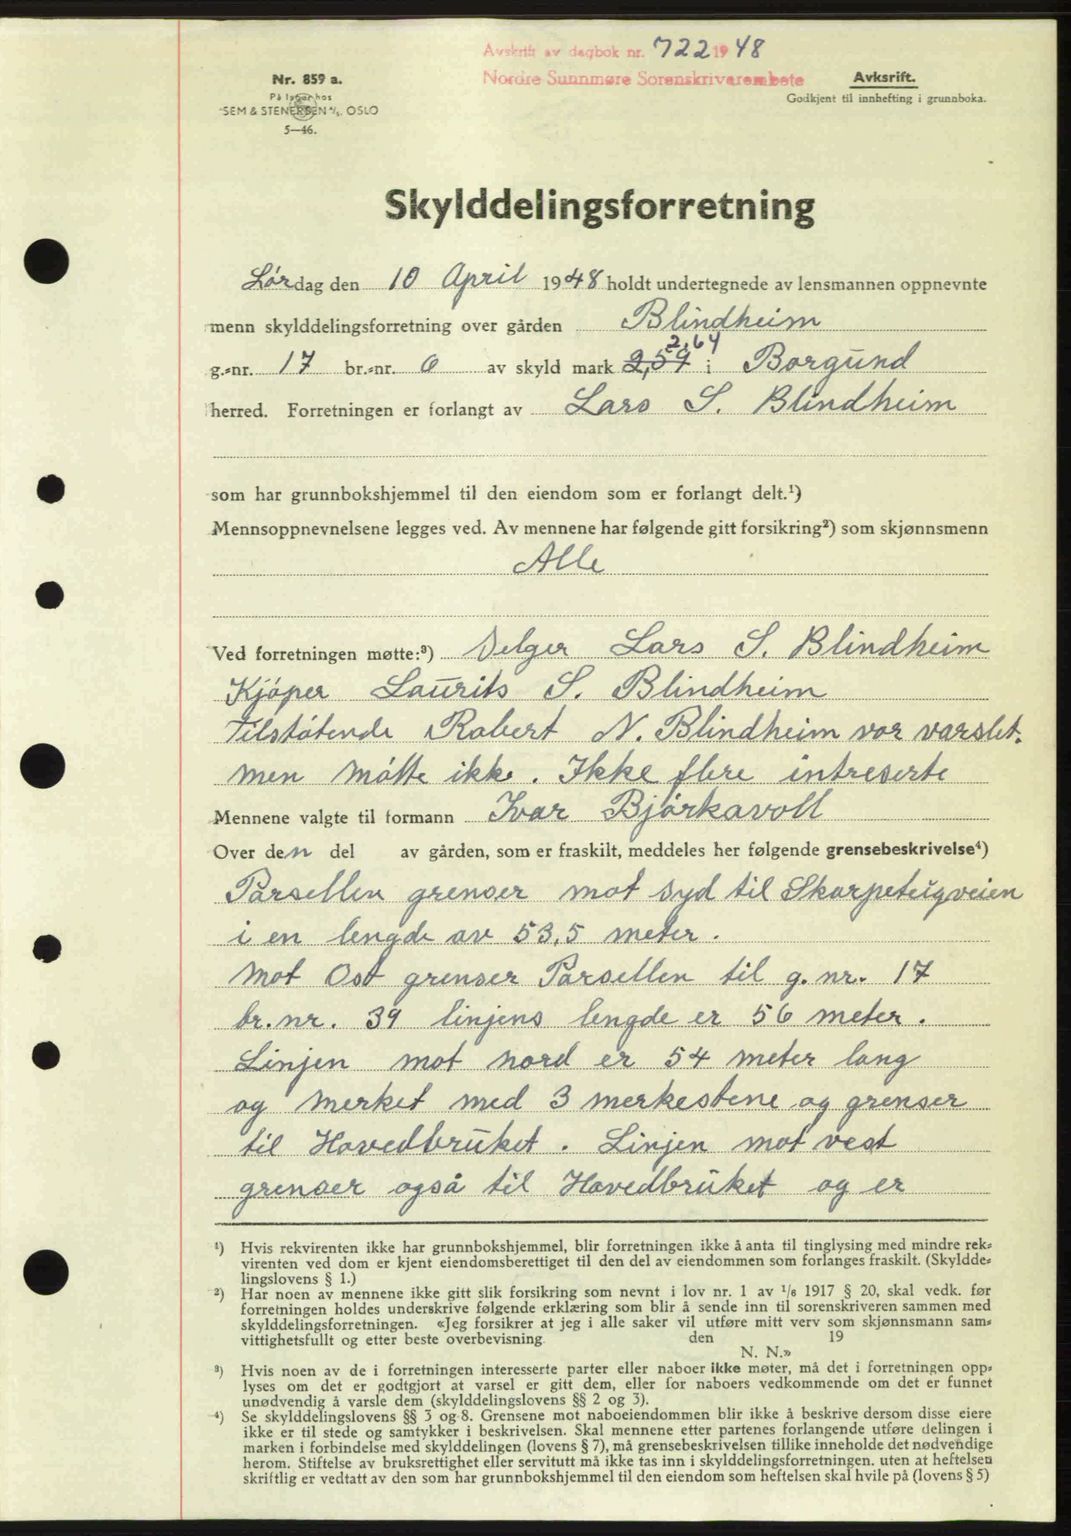 Avskrift av dagbok nr. 722 1948
Nordre Sunnmøre Sorenskriverembete
Avskrift.
Godkjent til innhefting i grunnboka.
Nr. 859 a.
På lager hos
SEM & STENERSEN A/S. OSLO
5—46.
Skylddelingsforretning
Lørdag den 10 April 1948 holdt undertegnede av lensmannen oppnevnte
menn skylddelingsforretning over gården Blindheim
2,64
g.-nr. 17 br.-nr. 6 av skyld mark 2,59 i Borgund
herred. Forretningen er forlangt av Lars S. Blindheim
som har grunnbokshjemmel til den eiendom som er forlangt delt.¹)
Mennsoppnevnelsene legges ved. Av mennene har følgende gitt forsikring²) som skjønnsmenn
Alle
Ved forretningen møtte:³) Selger Lars S. Blindheim
Kjöper Laurits S. Blindheim
Tilstötende Robert N. Blindheim var varslet.
men mötte ikke. Ikke flere intreserte
Mennene valgte til formann Ivar Björkavoll
Over den del av gården, som er fraskilt, meddeles her følgende grensebeskrivelse⁴)
Parsellen grenser mot syd til Skarpeteigveien
i en lengde av 53,5 meter.
Mot Ost grenser Parsellen til g. nr. 17
br. nr. 39 linjens lengde er 56 meter.
Linjen mot nord er 54 meter lang
og merket med 3 merkestene og grenser
til Hovedbrüket. Linjen mot vest
grenser også til Hovedbrüket og er
¹) Hvis rekvirenten ikke har grunnbokshjemmel, blir forretningen ikke å anta til tinglysing med mindre rek-
virenten ved dom er kjent eiendomsberettiget til den del av eiendommen som forlanges fraskilt. (Skyldde-
lingslovens § 1.)
²) Har noen av mennene ikke gitt slik forsikring som nevnt i lov nr. 1 av 1/6 1917 § 20, skal vedk. før
forretningen holdes underskrive følgende erklæring som blir å sende inn til sorenskriveren sammen med
skylddelingsforretningen. «Jeg forsikrer at jeg i alle saker vil utføre mitt verv som skjønnsmann sam-
vittighetsfullt og etter beste overbevisning den 19
N. N.»
³) Hvis noen av de i forretningen interesserte parter eller naboer ikke møter, må det i forretningen opp-
lyses om det er godtgjort at varsel er gitt dem, eller for naboers vedkommende om det er funnet
unødvendig å varsle dem (skylddelingslovens §§ 2 og 3).
⁴) Se skylddelingslovens §§ 3 og 8. Grensene mot naboeiendommen blir ikke å beskrive dersom disse eiere
ikke er til stede og samtykker i beskrivelsen. Skal mennene etter partenes forlangende utføre delingen i
marken i forbindelse med skylddelingen (lovens § 7), må grensebeskrivelsen tillike inneholde det nødvendige
herom. Stiftelse av bruksrettighet eller servitutt må ikke tas inn i skylddelingsforretningen. uten at heftelsen
skriftlig er vedtatt av den som har grunnbokshjemmel til den eiendom som heftelsen skal hvile på (lovens § 5)